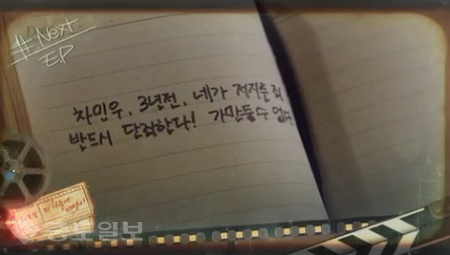 #Next
EP
차민우, 3년전, 네가 저지른 죄
반드시 단죄한다! 가만둘수 없다
충보일보